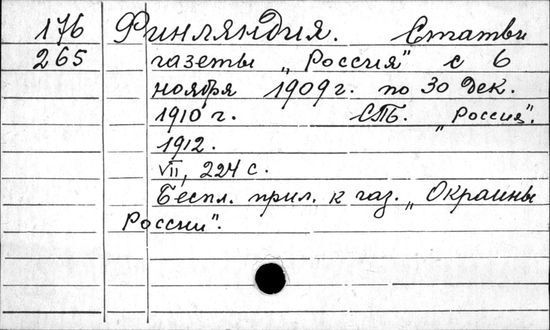 176 Финляндия. Статьи
265 газеты „Россия" с 6
ноября 1909 г. по 30 дек.
1910 г. СПб. „Россия".
1912.
VII, 224 с.
Беспл. прил. к газ. „Окраины
России".